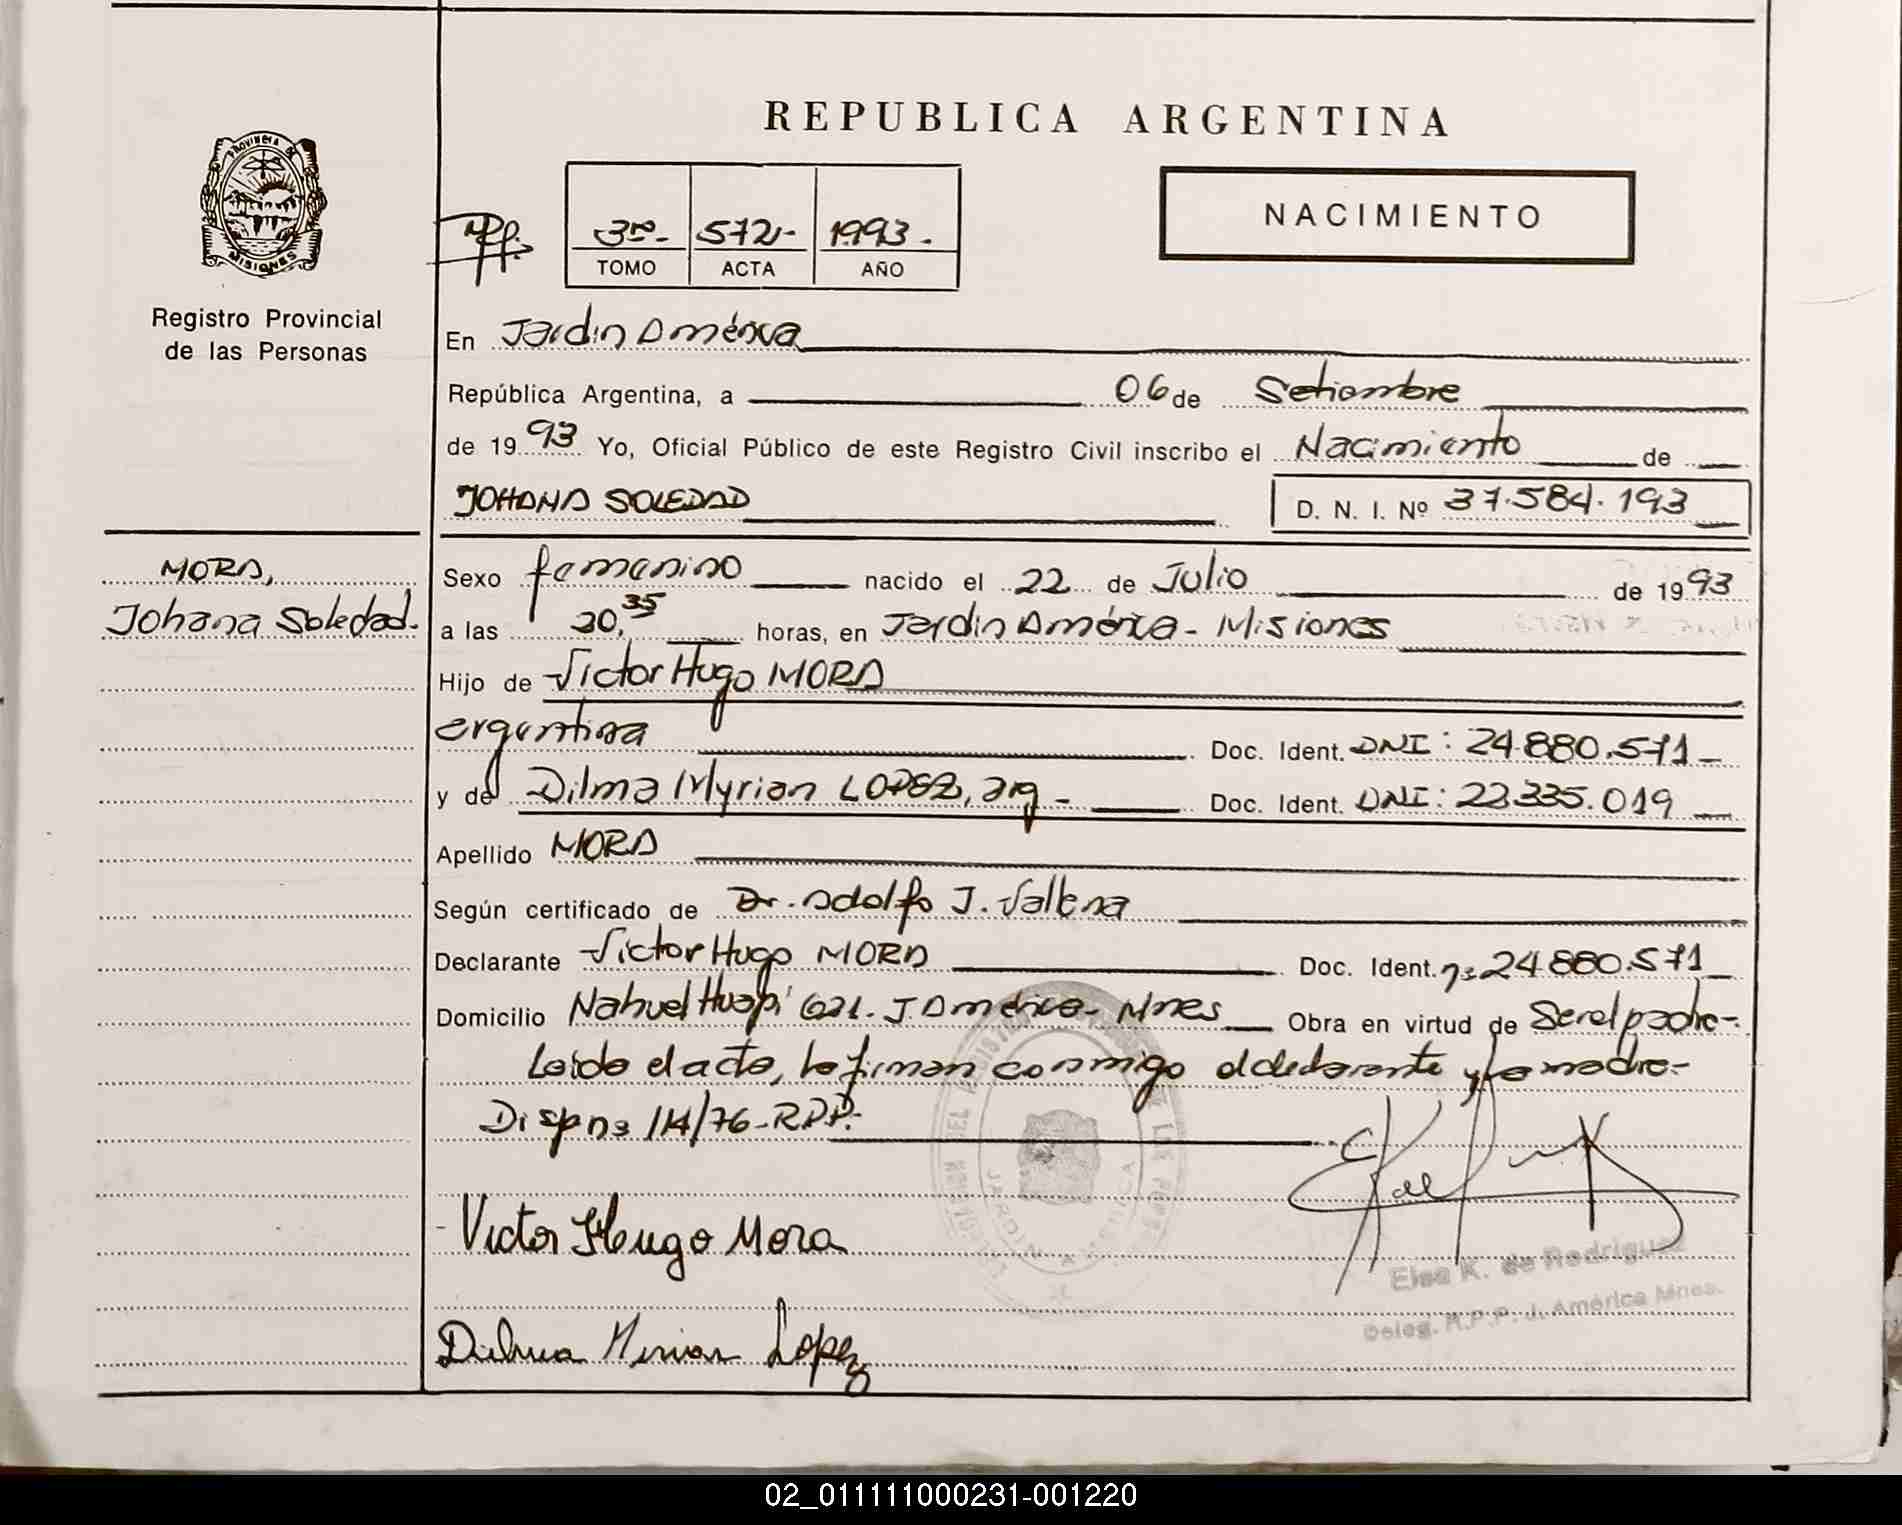 REPUBLICA ARGENTINA
PROVINCIA DE
MISIONES
Registro Provincial
de las Personas
3ro- 572- 1993.
TOMO ACTA AÑO
NACIMIENTO
En Jardin América
República Argentina, a 06 de Setiembre
de 1993 Yo, Oficial Público de este Registro Civil inscribo el Nacimiento de
JOHANA SOLEDAD D. N. I. Nº 37.584.193
MORA,
Johana Soledad.
Sexo femenino nacido el 22 de Julio de 1993
a las 20,35 horas, en Jardin América - Misiones
Hijo de Victor Hugo MORA
argentina Doc. Ident. DNI: 24.880.571
y de Dilma Myrian LOPEZ, arg - Doc. Ident. DNI: 22.335.019
Apellido MORA
Según certificado de Dr. Adolfo J.
Declarante Victor Hugo MORA Doc. Ident. 24.880.571
Domicilio Nahuel Huapi 621. J. América - Mnes Obra en virtud de Ser el padre-
Leida el acta, la firman conmigo el declarante y la madre-
114/76-RPP.
Victor Hugo Mora
Elsa K. de Rodriguez
Deleg. R.P.P. J. América Mnes.
Lopez
JARDIN AMERICA
02_011111000231-001220